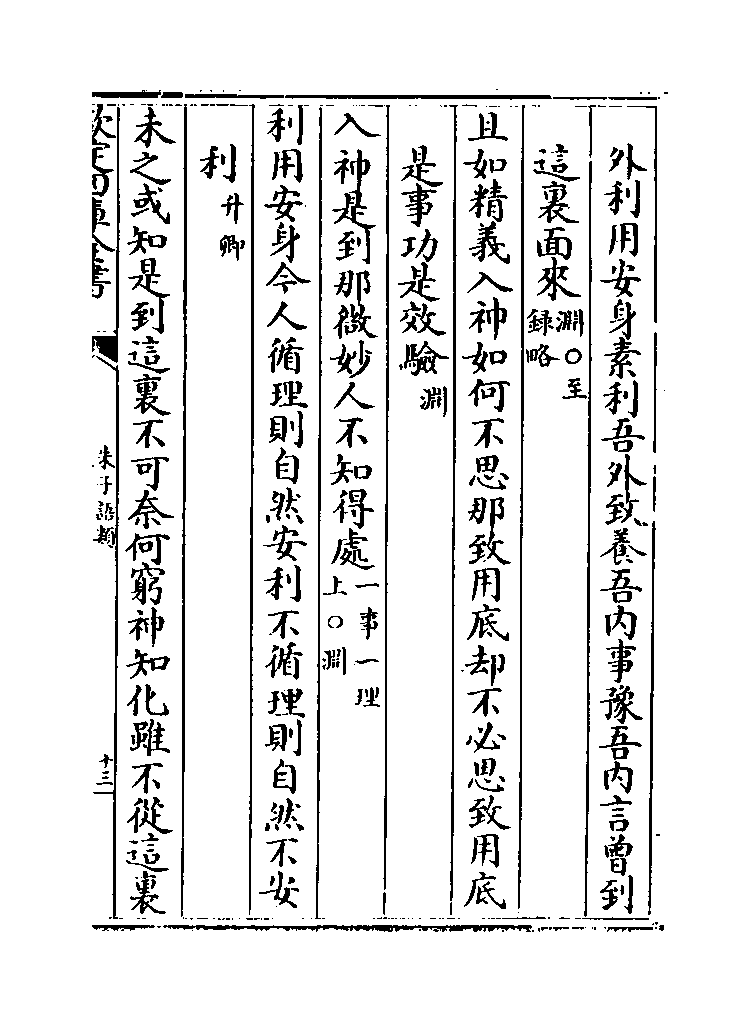 外利用安身素利吾外致養吾内事豫吾内言曾到
這裏面來淵○至
録略
且如精義入神如何不思那致用底却不必思致用底
是事功是效驗淵
入神是到那微妙人不知得處一事一理
上○淵
利用安身今人循理則自然安利不循理則自然不安
利升卿
未之或知是到這裏不可奈何窮神知化雖不從這裏
欽定四庫全書
朱子語類
十三